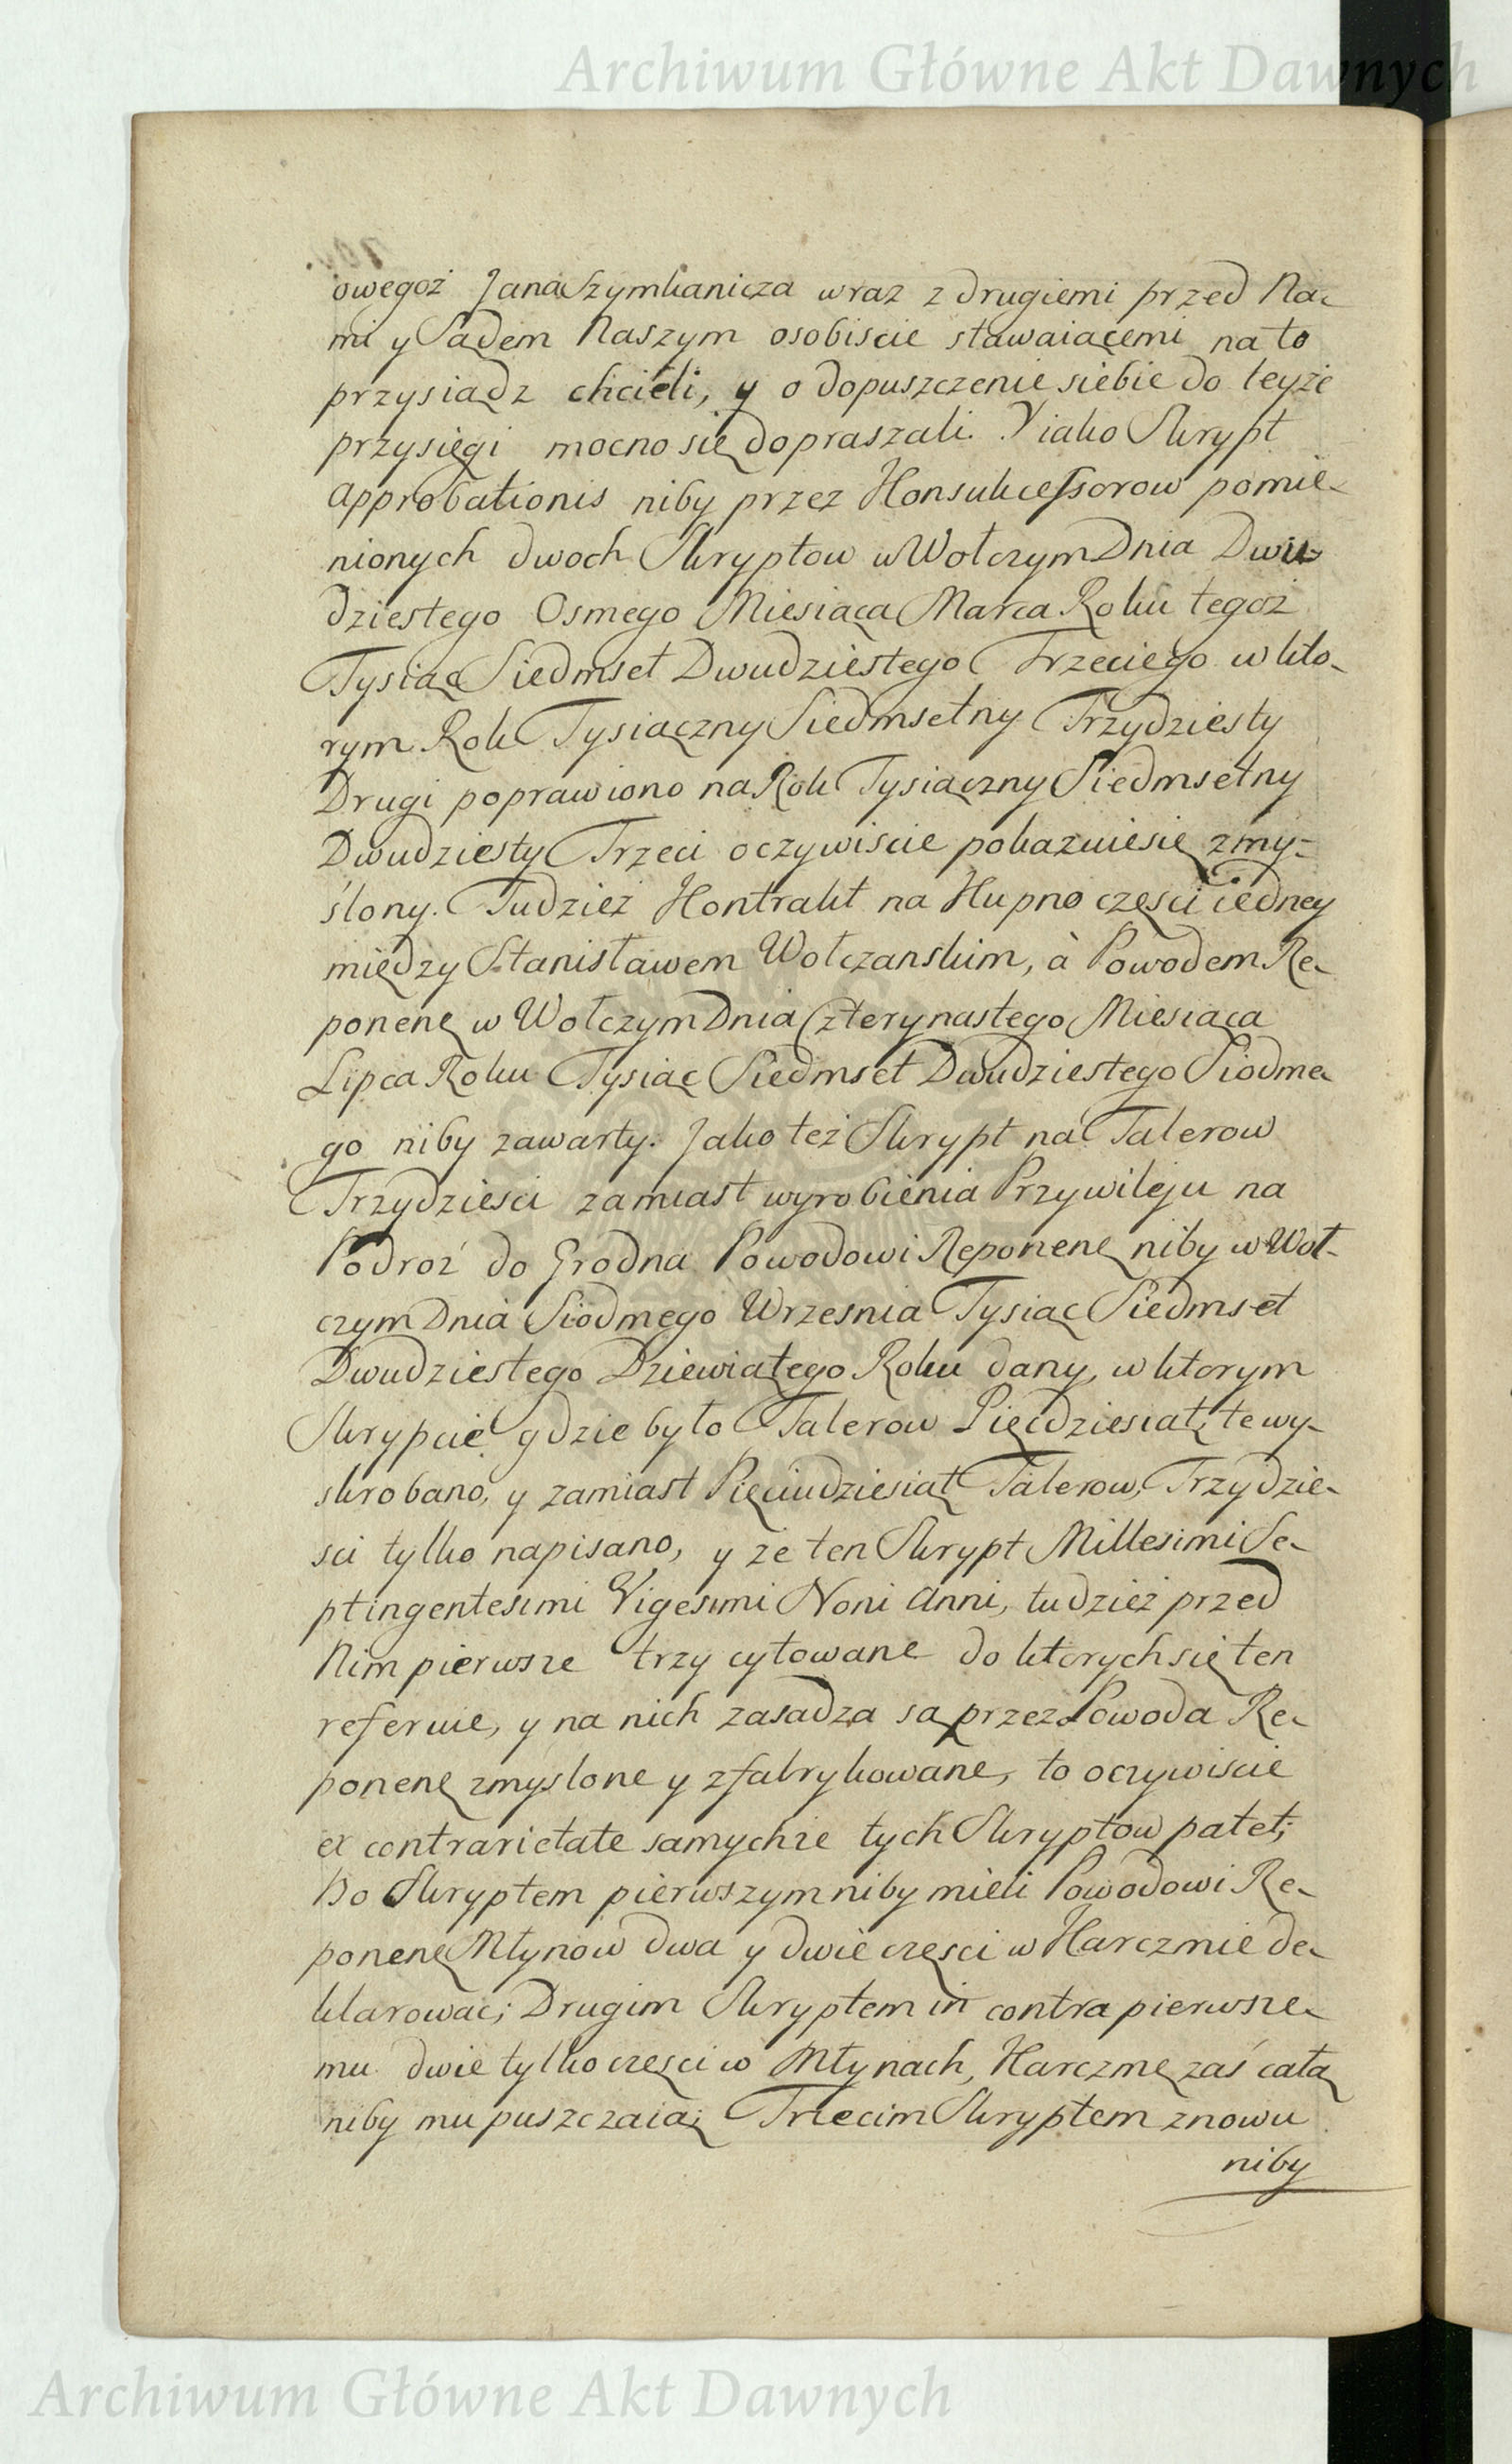 Archiwum Główne Akt Dawnych
owegoż Jana Szymkanicza wraz z drugiemi przed Na-
mi y Sądem Naszym osobiscie stawaiącemi na to
przysiądz chcieli, y o dopuszczenie siebie do teyże
przysięgi mocno się dopraszali. Y iako Skrypt
approbationis niby przez Konsukcessorow pomie-
nionych dwoch Skryptow w Wołczym Dnia Dwu-
dziestego Osmego Miesiąca Marca Roku tegoż
Tysiąc Siedmset Dwudziestego Trzeciego w kto-
rym Rok Tysiączny Siedmsetny Trzydziesty
Drugi poprawiono na Rok Tysiączny Siedmsetny
Dwudziesty Trzeci oczywiscie pokazuie się zmy-
ślony. Tudzież Kontrakt na Kupno częsci iedney
między Stanisławem Wołczanskim, à Powodem Re-
ponenę w Wołczym Dnia Czterynastego Miesiąca
Lipca Roku Tysiąc Siedmset Dwudziestego Siodme-
go niby zawarty. Jako też Skrypt na Talerow
Trzydziesci zamiast wyrobienia Przywileju na
Podroż do Grodna Powodowi Reponenę niby w Woł-
czym Dnia Siodmego Wrzesnia Tysiąc Siedmset
Dwudziestego Dziewiątego Roku dany, w ktorym
Skrypcie gdzie było Talerow Pięcdziesiąt, te wy-
skrobano, y zamiast Pięciudziesiąt Talerow, Trzydzie-
sci tylko napisano, y że ten Skrypt Millesimi Se-
ptingentesimi Vigesimi Noni Anni, tudzież przed
Nim pierwsze trzy cytowane do ktorych się ten
referuie, y na nich zasadza są przez Powoda Re-
ponenę zmyslone y zfabrykowane, to oczywiscie
ex contrarietate samychże tych Skryptow patet;
Bo Skryptem pierwszym niby mieli Powodowi Re-
ponenę Młynow dwa y dwie częsci w Karczmie de-
klarowac; Drugim Skryptem in contra pierwsze-
mu dwie tylko częsci w Młynach, Karczmę zaś całą
niby mu puszczaią; Trzecim Skryptem znowu
niby
Archiwum Główne Akt Dawnych